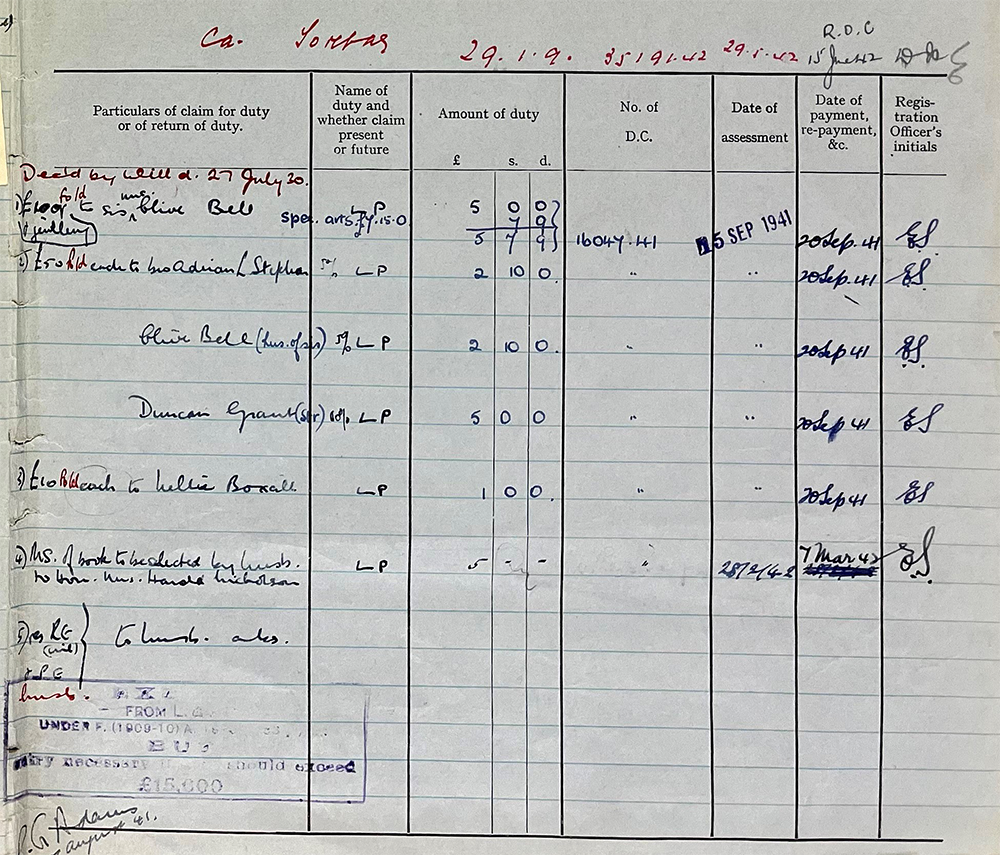 29.1.9. 35191.42 29.5.42 R.O.C
15 June 42
Particulars of claim for duty
or of return of duty.
Name of
duty and
whether claim
present
or future
Amount of duty
£ s. d.
No. of
D.C.
Date of
assessment
Date of
payment,
re-payment,
&c.
Regis-
tration
Officer's
initials
Decd by will d. 27 July 30.
1) £100 fold to sis, Mrs Clive Bell L P 5 0 0
jewllery spec. arts £7.15.0 7 9
5 7 9 16047.41 15 SEP 1941 20 Sep. 41 ES
2) £50 fold each to bro Adrian L Stephen 5% L P 2 10 0. " " 20 Sep. 41 ES
Clive Bell (hus. of sis) 5% L P 2 10 0. " " 20 Sep 41 ES
Duncan Grant (str) 10% L P 5 0 0 " " 20 Sep 41 ES
3) £10 fold each to Nellie Boxall L P 1 0 0. " " 20 Sep 41 ES
4) MS. of book to be selected by husb.
to Hon. Mrs. Harold Nicholson L P 5 - - " 28/2/42 7 Mar. 42 ES
5) res RE
(nil)
+ P E
to husb. abs.
husb.
FROM L.
UNDER F. (1909-10) A.
necessary should exceed
£15,000
Adams
August 41.